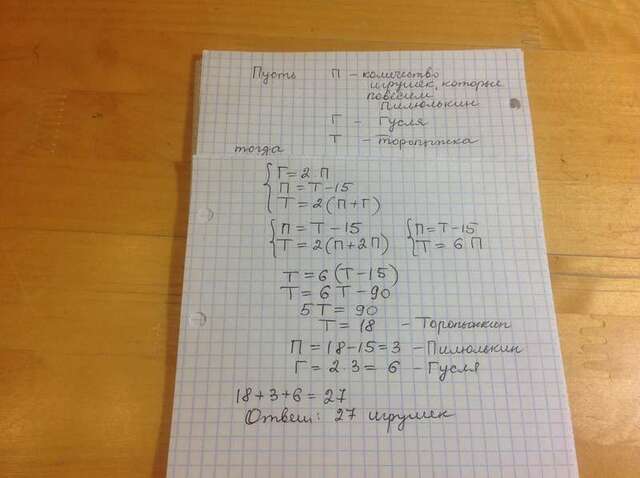 Пусть П - количество
игрушек, которые
повесил
Пилюлькин
Г - Гусля
Т - Торопыжка
тогда
Г = 2 · П
П = Т - 15
Т = 2 (П + Г)
П = Т - 15 П = Т - 15
Т = 2 (П + 2П) Т = 6 П
Т = 6 (Т - 15)
Т = 6 Т - 90
5 Т = 90
Т = 18 - Торопыжкин
П = 18 - 15 = 3 - Пилюлькин
Г = 2 · 3 = 6 - Гусля
18 + 3 + 6 = 27
Ответ: 27 игрушек